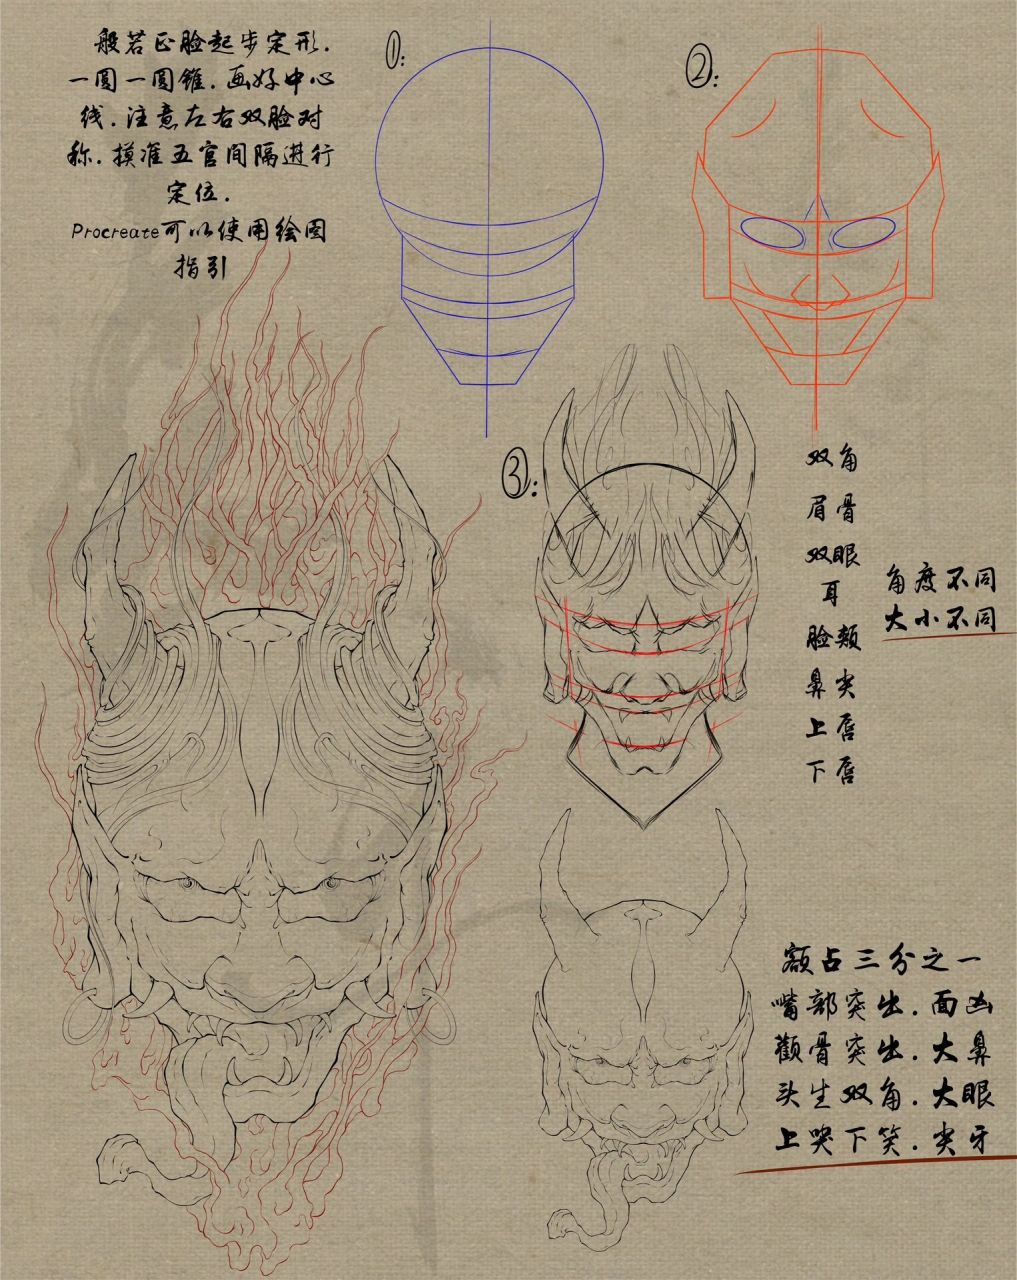 般若正脸起步定形.
一圆一圆锥.画好中心
线.注意左右双脸对
称.摸准五官间隔进行
定位.
Procreate可以使用绘图
指引
①:
②:
③:
双角
眉骨
双眼
耳
脸颊
鼻尖
上唇
下唇
角度不同
大小不同
额占三分之一
嘴部突出.面凶
颧骨突出.大鼻
头生双角.大眼
上哭下笑.尖牙